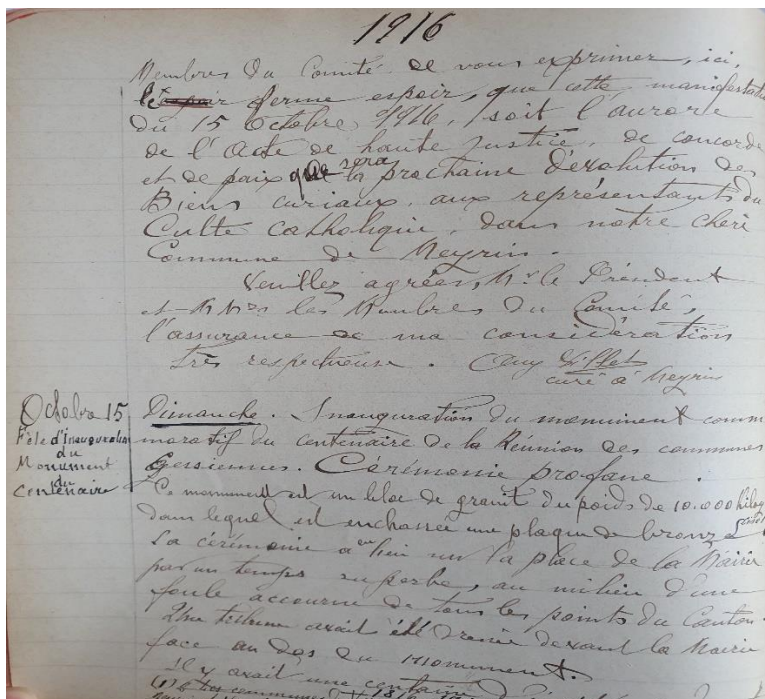 1916
Membres du Comité de vous exprimer, ici,
le ferme espoir, que cette manifestation
du 15 Octobre 1916, soit l'aurore
de l'Acte de haute justice, de concorde
et de paix que sera la prochaine dévolution des
Biens curiaux, aux représentants du
Culte catholique, dans notre chère
Commune de Meyrin.
Veuillez agréer, Mr le Président
et MMrs les Membres du Comité,
l'assurance de ma considération
très respectueuse.
curé à Meyrin
Octobre 15
Fête d'inauguration
du
Monument
du
Centenaire
Dimanche. Inauguration du monument comm
moratif du centenaire de la Réunion des communes
Gessiennes. Cérémonie profane.
Ce monument est un bloc de granit du poids de 10.000 kilog
dans lequel est enchassée une plaque de bronze
La cérémonie a eu lieu sur la place de la Mairie
par un temps superbe, au milieu d'une
foule accourue de tous les points du Canton.
Une tribune avait été dressée devant la Mairie
face au dos du Monument.
Il y avait une centaine